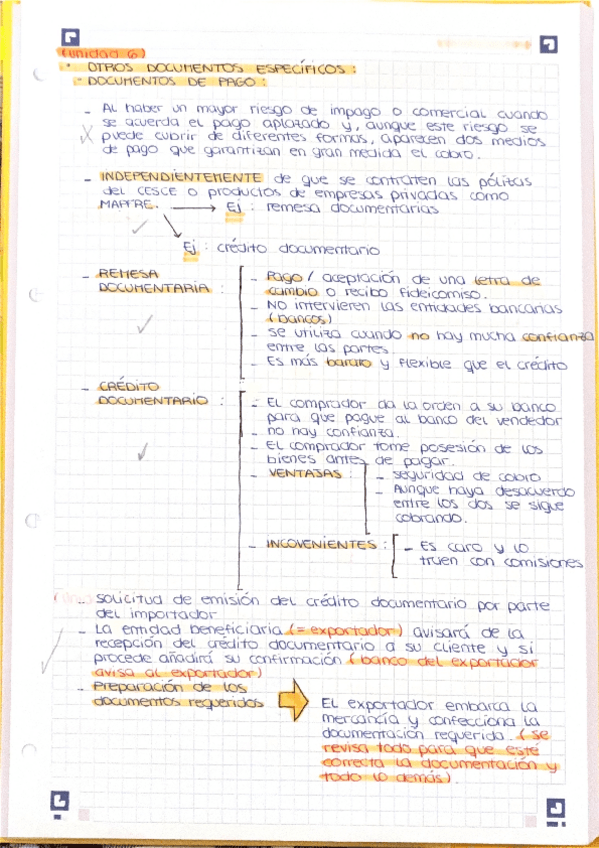 (Unidad 6)
· OTROS DOCUMENTOS ESPECÍFICOS:
- DOCUMENTOS DE PAGO:
- Al haber un mayor riesgo de impago o comercial cuando
se acuerda el pago aplazado y, aunque este riesgo se
puede cubrir de diferentes formas, aparecen dos medios
de pago que garantizan en gran medida el cobro.
- INDEPENDIENTEMENTE de que se contraten las pólizas
del CESCE o productos de empresas privadas como
MAPFRE. → Ej: remesa documentarias
Ej: crédito documentario
- REMESA
DOCUMENTARIA:
- Pago / aceptación de una letra de
cambio o recibo fideicomiso.
- NO intervieren las entidades bancarias
(bancos)
- se utiliza cuando no hay mucha confianza
entre las partes.
- Es más barato y flexible que el crédito
- CRÉDITO
DOCUMENTARIO:
- El comprador da la orden a su banco
para que pague al banco del vendedor
- no hay confianza.
- El comprador tome posesión de los
bienes antes de pagar.
- VENTAJAS:
- seguridad de cobro
- Aunque haya desacuerdo
entre los dos se sigue
cobrando.
- INCOVENIENTES:
- Es caro y lo
truen con comisiones
- Solicitud de emisión del crédito documentario por parte
del importador
- La entidad beneficiaria (= exportador) avisará de la
recepción del crédito documentario a su cliente y si
procede añadirá su confirmación (banco del exportador
avisa al exportador)
- Preparación de los
documentos requeridos
El exportador embarca la
mercancía y confecciona la
documentación requerida. (se
revisa todo para que esté
correcta la documentación y
todo lo demás).